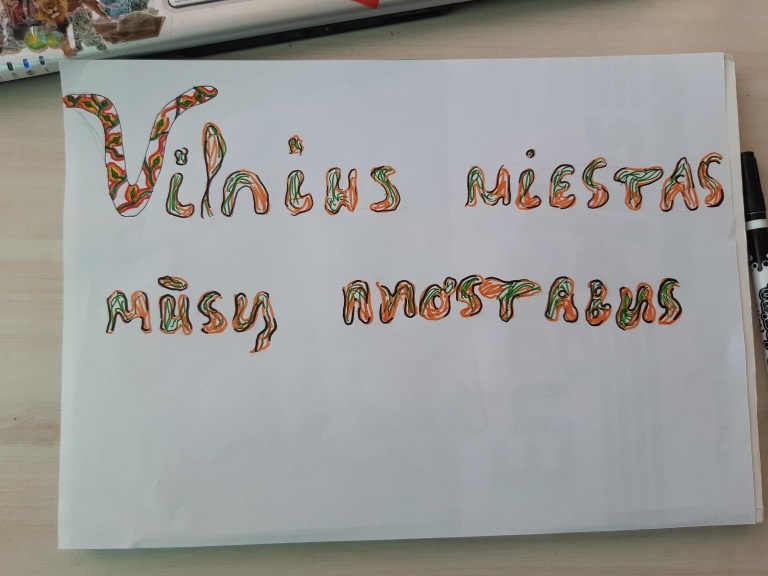 Vilnius miestas
mūsų nuostabus